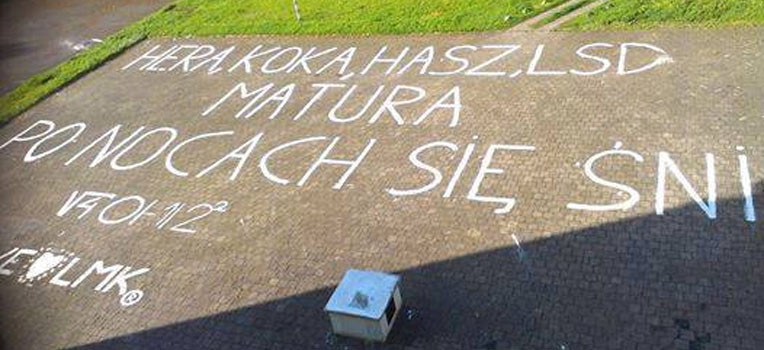 HERA, KOKA, HASZ, LSD
MATURA
PO NOCACH SIĘ ŚNI
LMK®